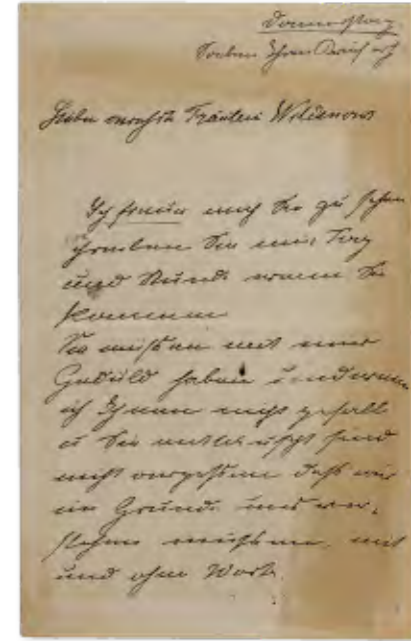 Donnerstag
Soeben Ihren Brief erh
Liebe verehrte Fräulein
Ich freue mich Sie zu sehen
schreiben Sie mir Tag
und Stunde wann Sie
kommen
Sie müssen mit mir
Geduld haben und wenn
ich Ihnen nicht gefall
u Sie enttäuscht sind
nicht vergessen daß wir
im Grunde uns ver-
stehen müssen, mit
und ohne Worte.